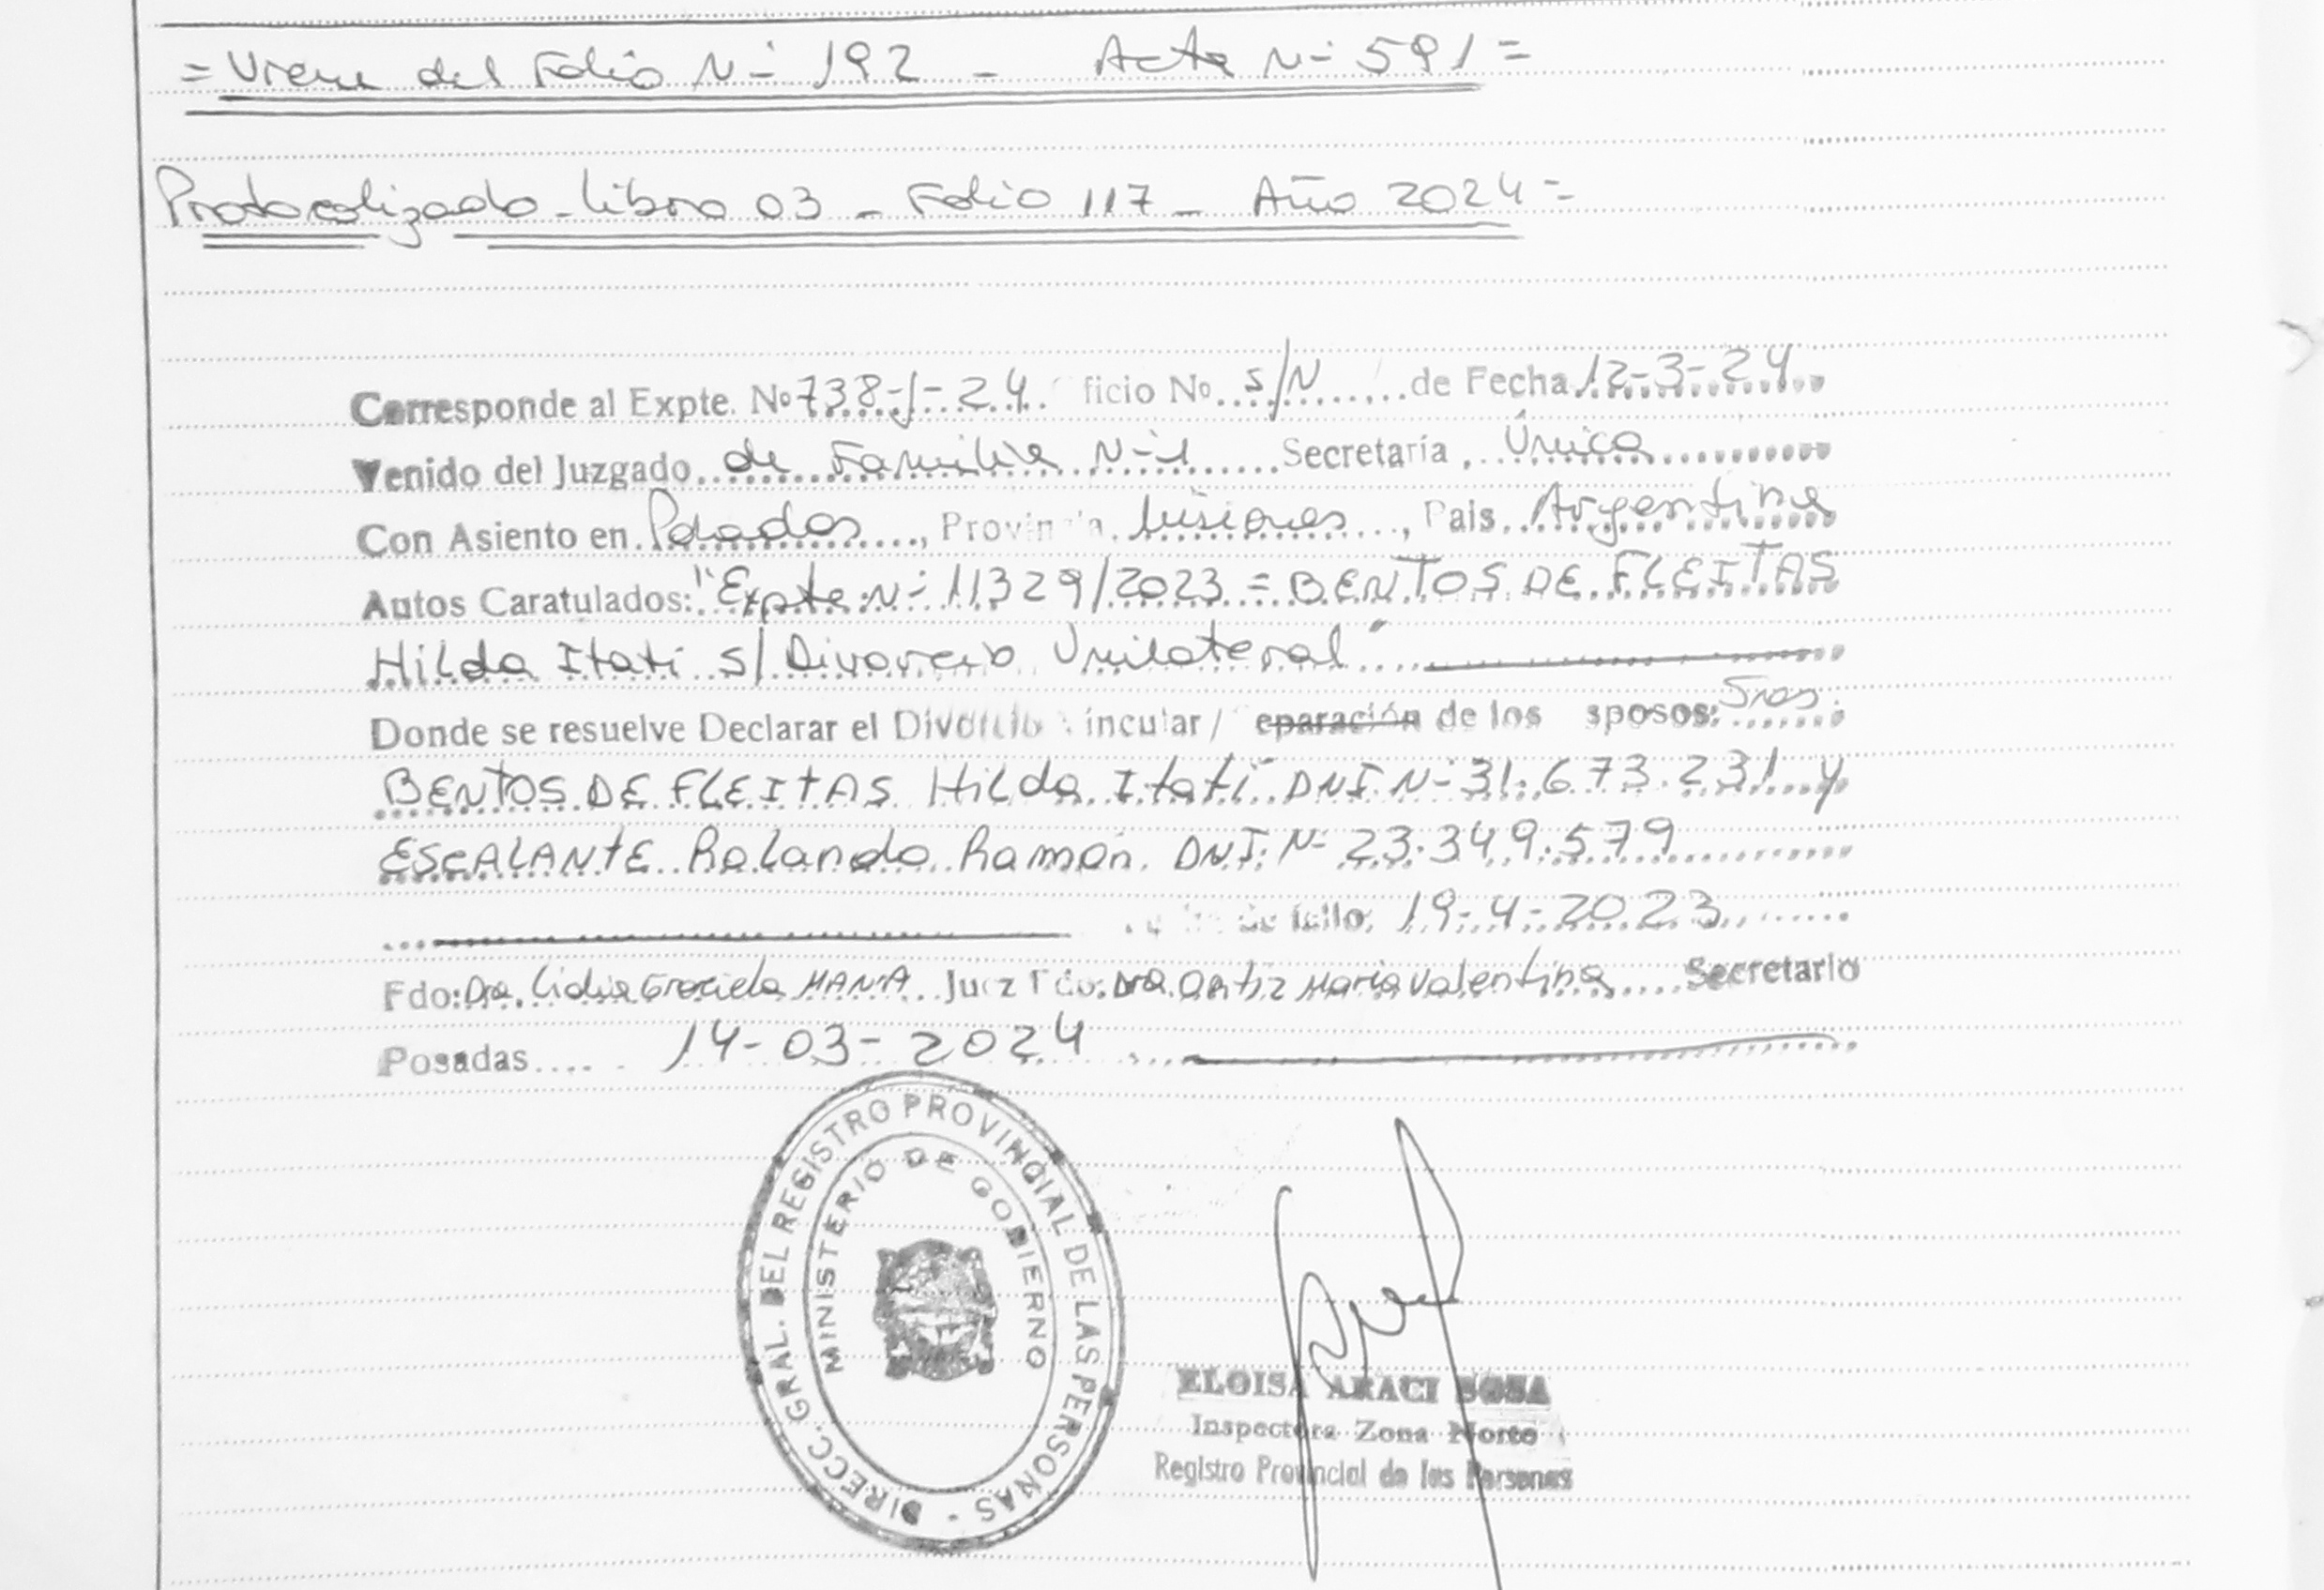 = Viene del Folio N- 192 - Acta N- 591 =
Protocolizado - Libro 03 - Folio 117 - Año 2024 =
Corresponde al Expte. Nº 738-J-24. ficio Nº s/N de Fecha 12-3-24
Venido del Juzgado de Familia N-1 Secretaría Única
Con Asiento en Posadas, Provincia Misiones, Pais Argentina
Autos Caratulados: "Expte N- 11329/2023 = BENTOS DE FLEITAS
Hilda Itati s/ Divorcio Unilateral"
Donde se resuelve Declarar el Divorcio incular / eparación de los sposos: Sres.
BENTOS DE FLEITAS Hilda Itatí DNI N- 31.673.231 y
ESCALANTE Rolando Ramón DNI N- 23.349.579
de fallo: 19-4-2023
Fdo: Dra. Lidia Graciela MANA Juez Fdo: Dra. Ortiz Maria Valentina Secretario
Posadas 14-03-2024
DIRECC. GRAL. DEL REGISTRO PROVINCIAL DE LAS PERSONAS -
MINISTERIO DE GOBIERNO
ELOISA ARACI SOSA
Inspectora Zona Norte
Registro Provincial de las Personas